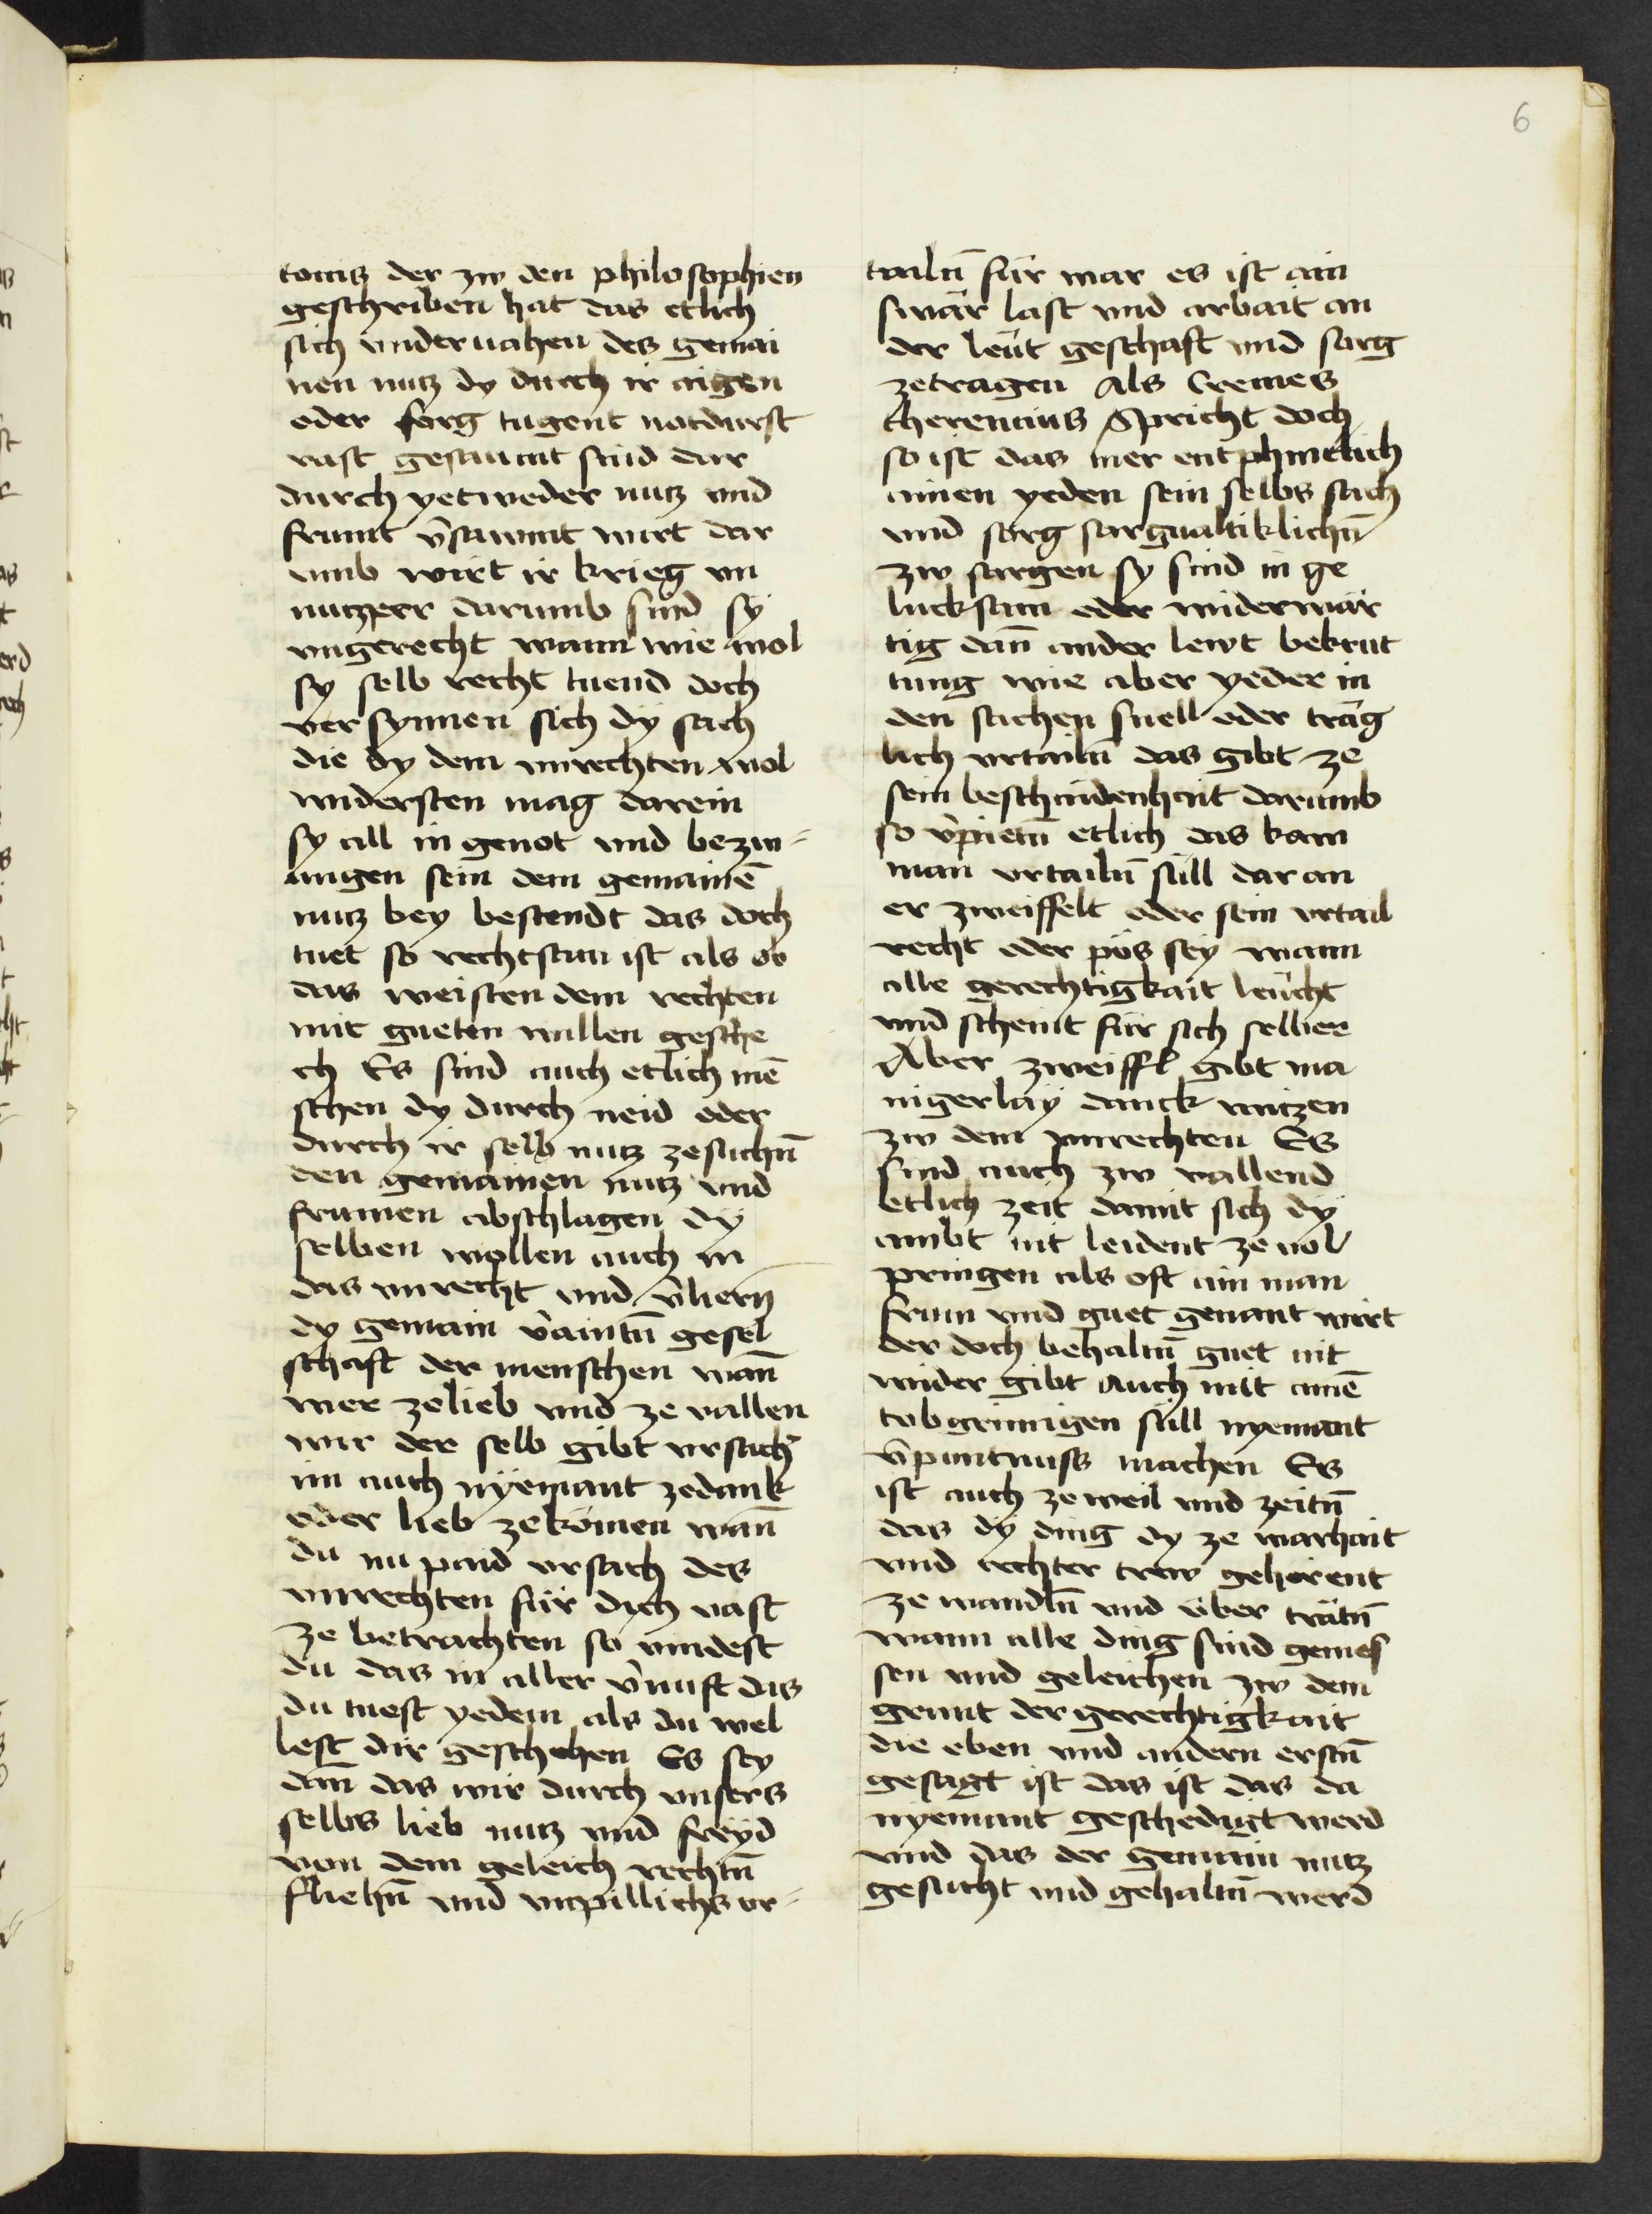 6
tonis der zw den philosophien
geschriben hat das etlich
sich vndernahen des gemai
nen nutz dy durch ir aigen
oder sorg tugent notdurft
vast gesaumt sind dar
durch yetweder nutz vnd
frumt v̄sawmt wirt dar
vmb wirt ir krieg vn
nutzper darumb sind sy
vngerecht wann wie wol
sy selb recht tuend doch
versynnen sich dy sach
die dy dem vnrechten wol
widersten mag darein
sy all in genot vnd bezw-
ungen sein dem gemainē
nutz bey bestendt das doch
tuet so rechtsam ist als ob
das weisten dem rechten
mit gueten willen gesche
ch Es sind auch etlich mē
schen dy durch neid oder
durch ir selb nutz zesuchn̄
den gemainen nutz vnd
frumen abschlagen dy
selben wollen auch in
das vnrecht vnd v̄liern
dy gemain v̄aintn̄ gesel
schaft der menschen wan̄
wer zelieb vnd ze vallen
wir der selb gibt vrsach
im auch nyemant zedank
oder lieb zekömen wan̄
du nu paid vrsach des
vnrechten für dich vast
ze betrachten so vindest
du das in aller v̄nuft das
du tuest yedem als du wel
lest dir geschehen Es sey
dan̄ das wir durch vnsers
selbs lieb nutz vnd freyd
von dem geleich rechtn̄
fliehn̄ vnd vnpillichs vr-
tailn̄ für war es ist ain
swär last vnd arbait an
der leüt geschaft vnd sarg
zetragen Als Cremes
therencius Spricht doch
so ist das mer entphintlich
ainen yeden sein selbs sach
vnd sorg sarguältiklichn̄
zw sargen sy sind in ge
lucksam oder widerwär
tig dan̄ ander lewt betrat
tung wie aber yeder in
den sachen snell oder träg
lich vrtailn̄ das gibt ze
sein beschaidenhait darumb
so v̄pietn̄ etlich das kain
man vrtailn̄ süll dar an
er zweiffelt oder sein vrtail
recht oder pös sey wann
alle gerechtigkait leücht
vnd scheint für sich selber
Aber zweiffl gibt ma
nigerlay danck nutzen
zw dem vnrechten Es
sind auch zw vallend
etlich zeit damit sich dy
ambt nit leident ze vol
pringen als oft ain man
frum vnd guet genant wirt
der doch behaltn̄ guet nit
wider gibt Auch mit ainē
tobgeinigen süll nyemant
v̄puntnuss machen Es
ist auch ze weil vnd zeitn̄
das dy ding dy ze warhait
vnd rechter trew gehörent
ze wandln̄ vnd über trätn̄
wann alle ding sind gemes
sen vnd geleichen zw dem
grunt der gerechtigkait
die eben vnd andern erstn̄
gesagt ist das ist das da
nyemant geschedigt werd
vnd das der gemain nutz
gesucht vnd gehaltn̄ werd